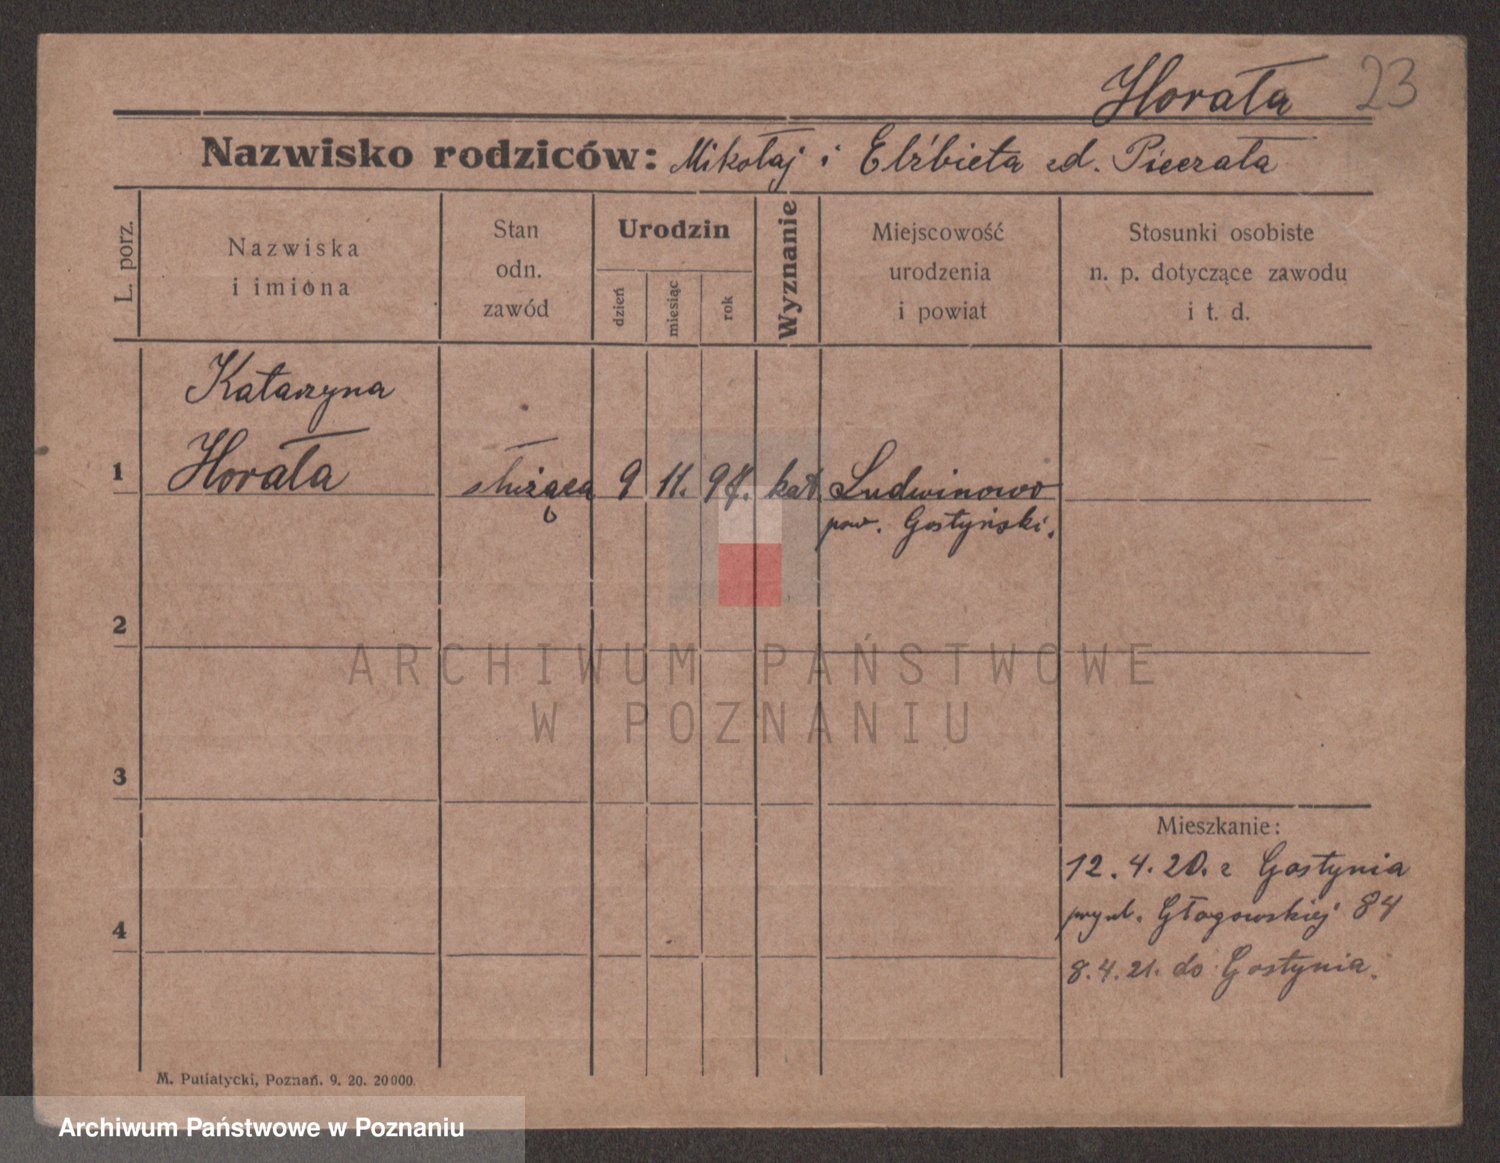 Horała 23
Nazwisko rodziców: Mikołaj i Elżbieta zd. Pieczała
L. porz.
Nazwiska
i imiona
Stan
odn.
zawód
Urodzin
dzień
miesiąc
rok
Wyznanie
Miejscowość
urodzenia
i powiat
Stosunki osobiste
n. p. dotyczące zawodu
i t. d.
Katarzyna
1 Horała służąca 9 11. kat. Ludwinowo
pow. Gostyński.
2
ARCHIWUM PAŃSTWOWE
W POZNANIU
3
Mieszkanie:
12. 4. 20. z Gostynia
4 Głogowskiej 84
8. 4. 21. do Gostynia.
M. Putiatycki, Poznań. 9. 20. 20000.
Archiwum Państwowe w Poznaniu